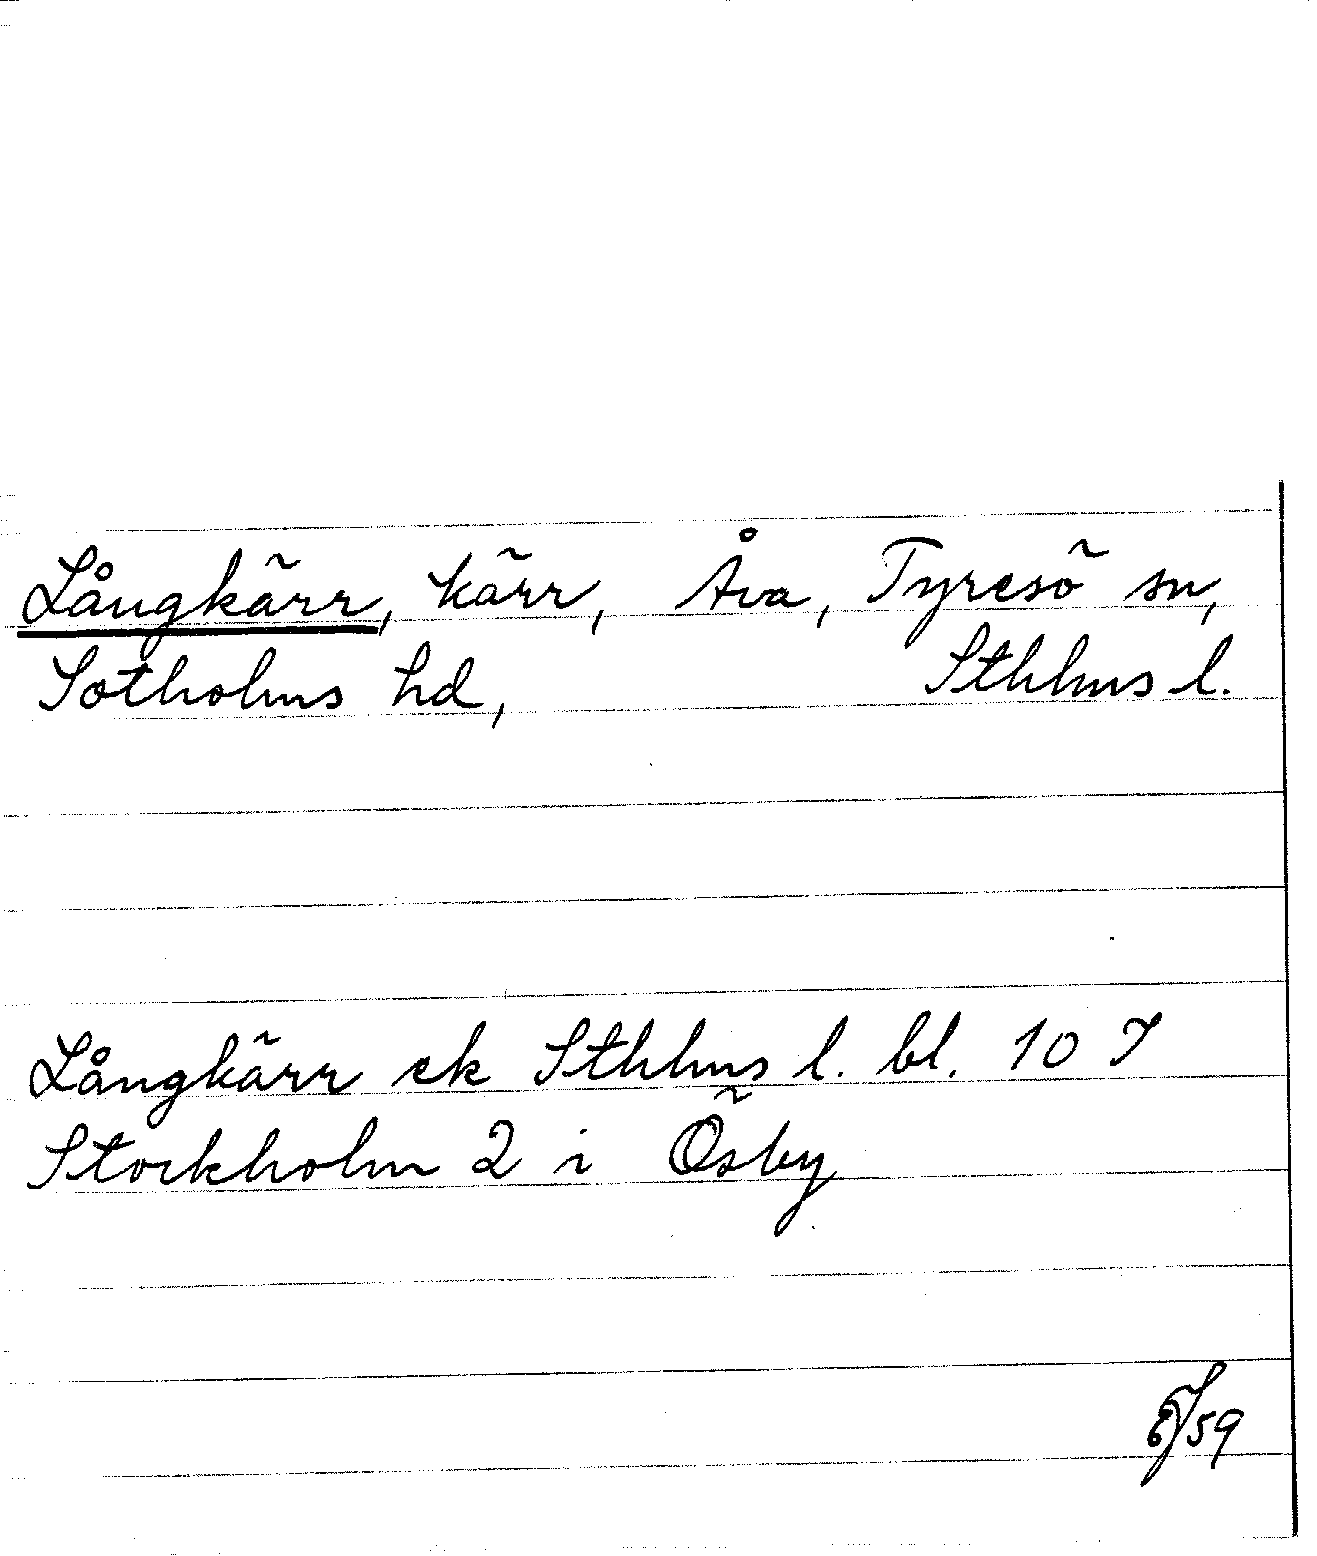 Långkärr, kärr, Åva, Tyresö sn,
Sotholms hd, Sthlms l.
Långkärr ek Sthlms l. bl. 10 I
Stockholm 2 i Ösby
/59